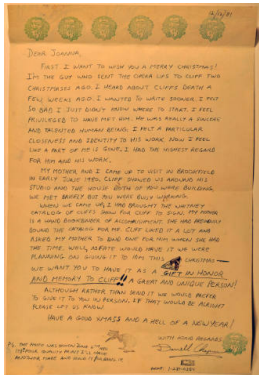 12/14/81
Dear Joanna,
First I want to wish you a Merry Christmas!
I'm the guy who sent the life to Cliff two
Christmases ago. I heard about Cliff's death a
few weeks ago. I wanted to write sooner. I felt
so bad I just didn't know where to start. I feel
privileged to have met him. He was really a sincere
and talented human being. I felt a particular
closeness and identity to his work. Now I feel
like a part of me is gone. I had the highest regard
for him and his work.
My mother and I came up to visit in
in early June 1980. Cliff showed us around his
studio and the house both of you were building.
We met briefly but you were busy working.
When we came up, I had brought the Whitney
catalog of Cliff's show for Cliff to sign. My mother
is a hand bookbinder of accomplishment. She had recently
bound the catalog for me. Cliff liked it a lot and
asked my mother to bind one for him when she had
the time. Well, as fate would have it we were
planning on giving it to him this Christmas
We want you to have it as a gift in honor
and memory to Cliff!! A great and unique person!
Although rather than send it we would prefer
to give it to you in person, if that would be alright
please let us know.
Have a good Xmas and a hell of a New Year!
With warm regards,
Donald
P.S.